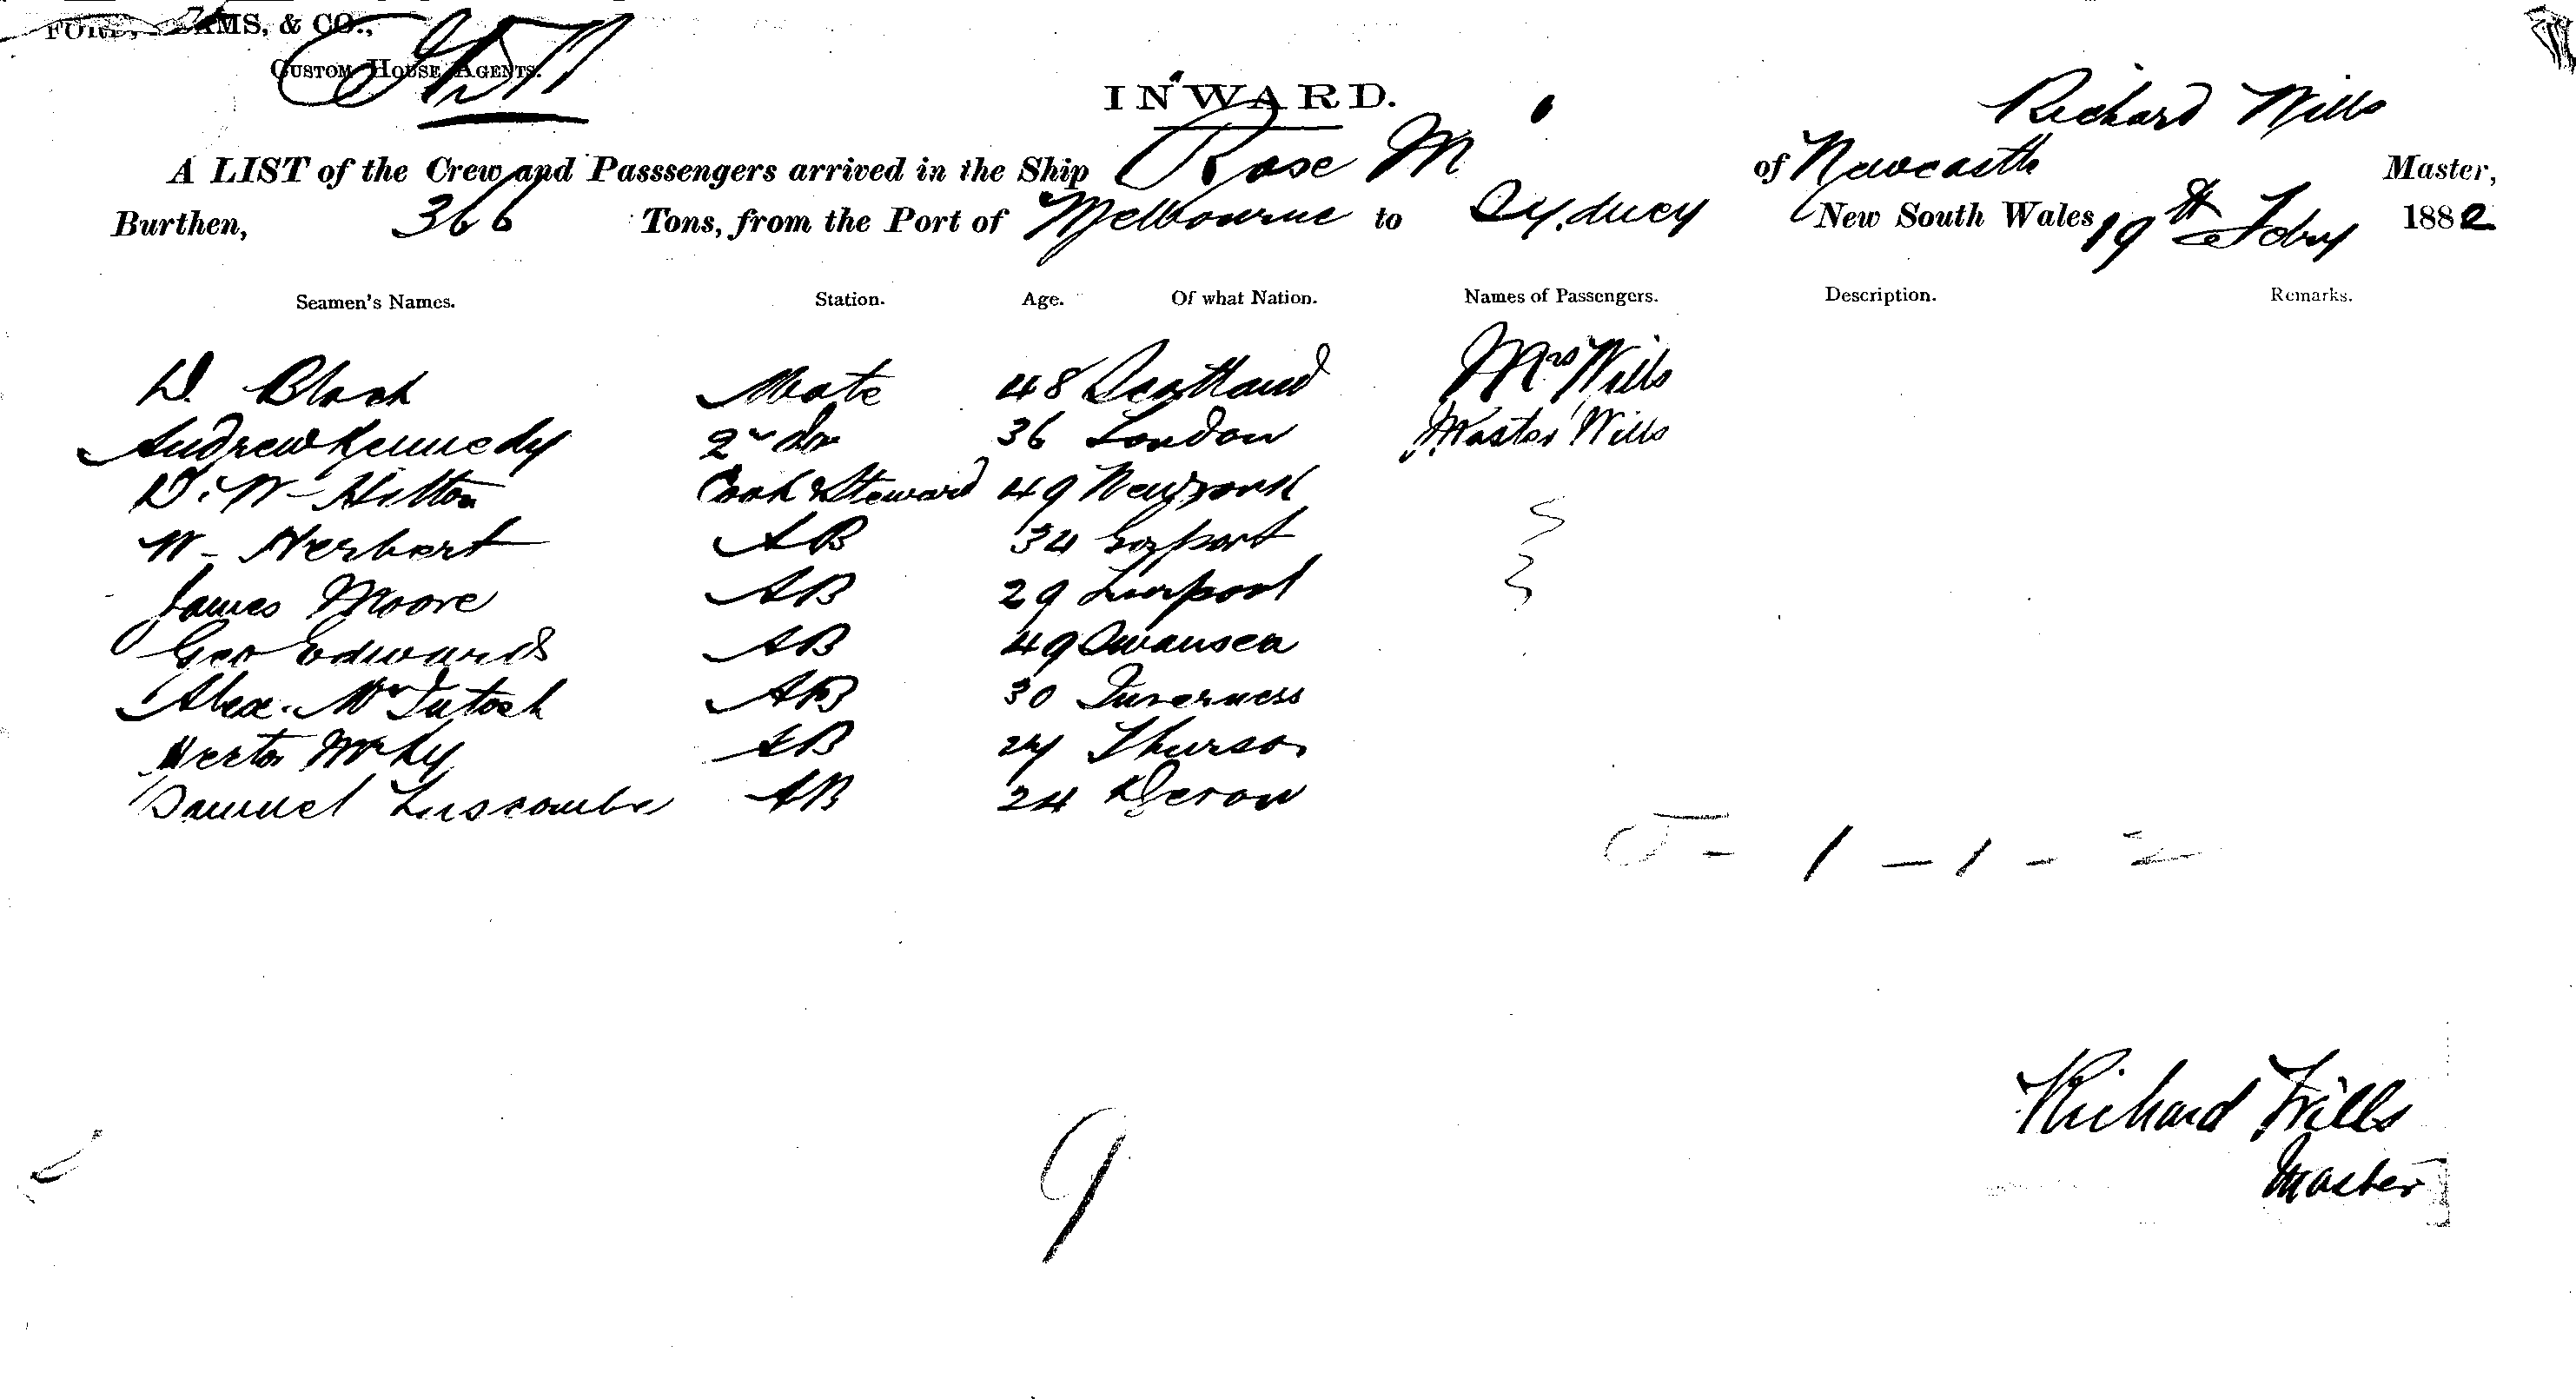 CUSTOM HOUSE AGENTS.
INWARD.
Richard Wills
A LIST of the Crew and Passsengers arrived in the Ship Rose M of Newcastle Master,
Burthen, 366 Tons, from the Port of Melbourne to Sydney New South Wales 19th Feby 1882
Seamen's Names. Station. Age. Of what Nation. Names of Passengers. Description. Remarks.
D. Black Mate 48 Scotland Mrs Wills
Andrew Kennedy 2nd do 36 London Master Wills
D. W. Hilton Cook & Steward 49 Newyork
W. Herbert AB 34 Gosport
James Moore AB 29 Liverpool
Geo Edwards AB 49 Swansea
Alex. McIntosh AB 30 Inverness
AB Thurso
Samuel Luscombe AB 24 Devon
- 1 - 1 - 2
Richard Wills
Master
9